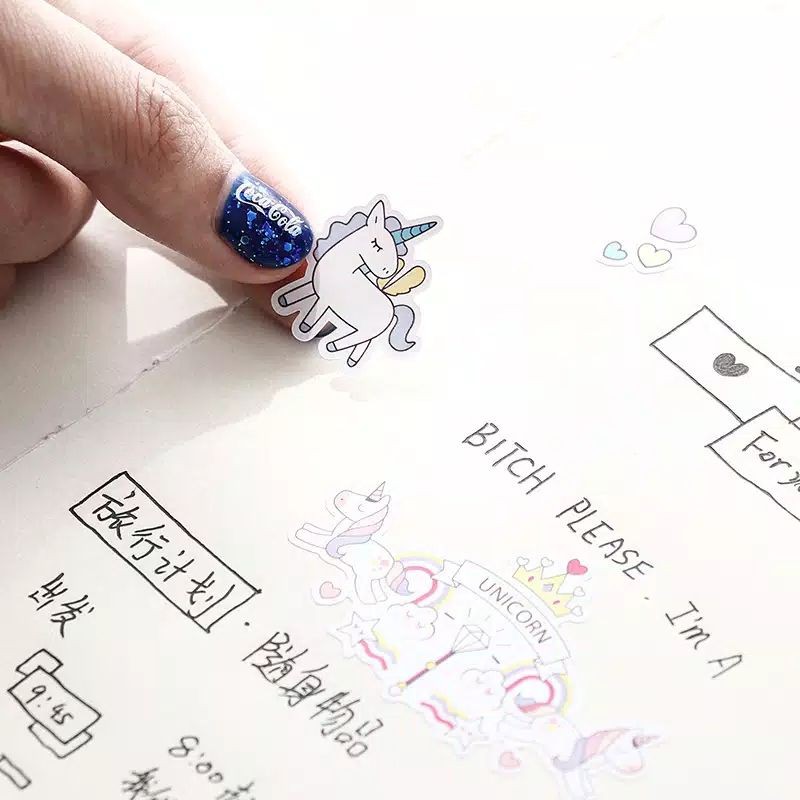 Coca Cola
For
BITCH PLEASE. I'm A
UNICORN
旅行计划
随身物品
出发
9:45
8:00